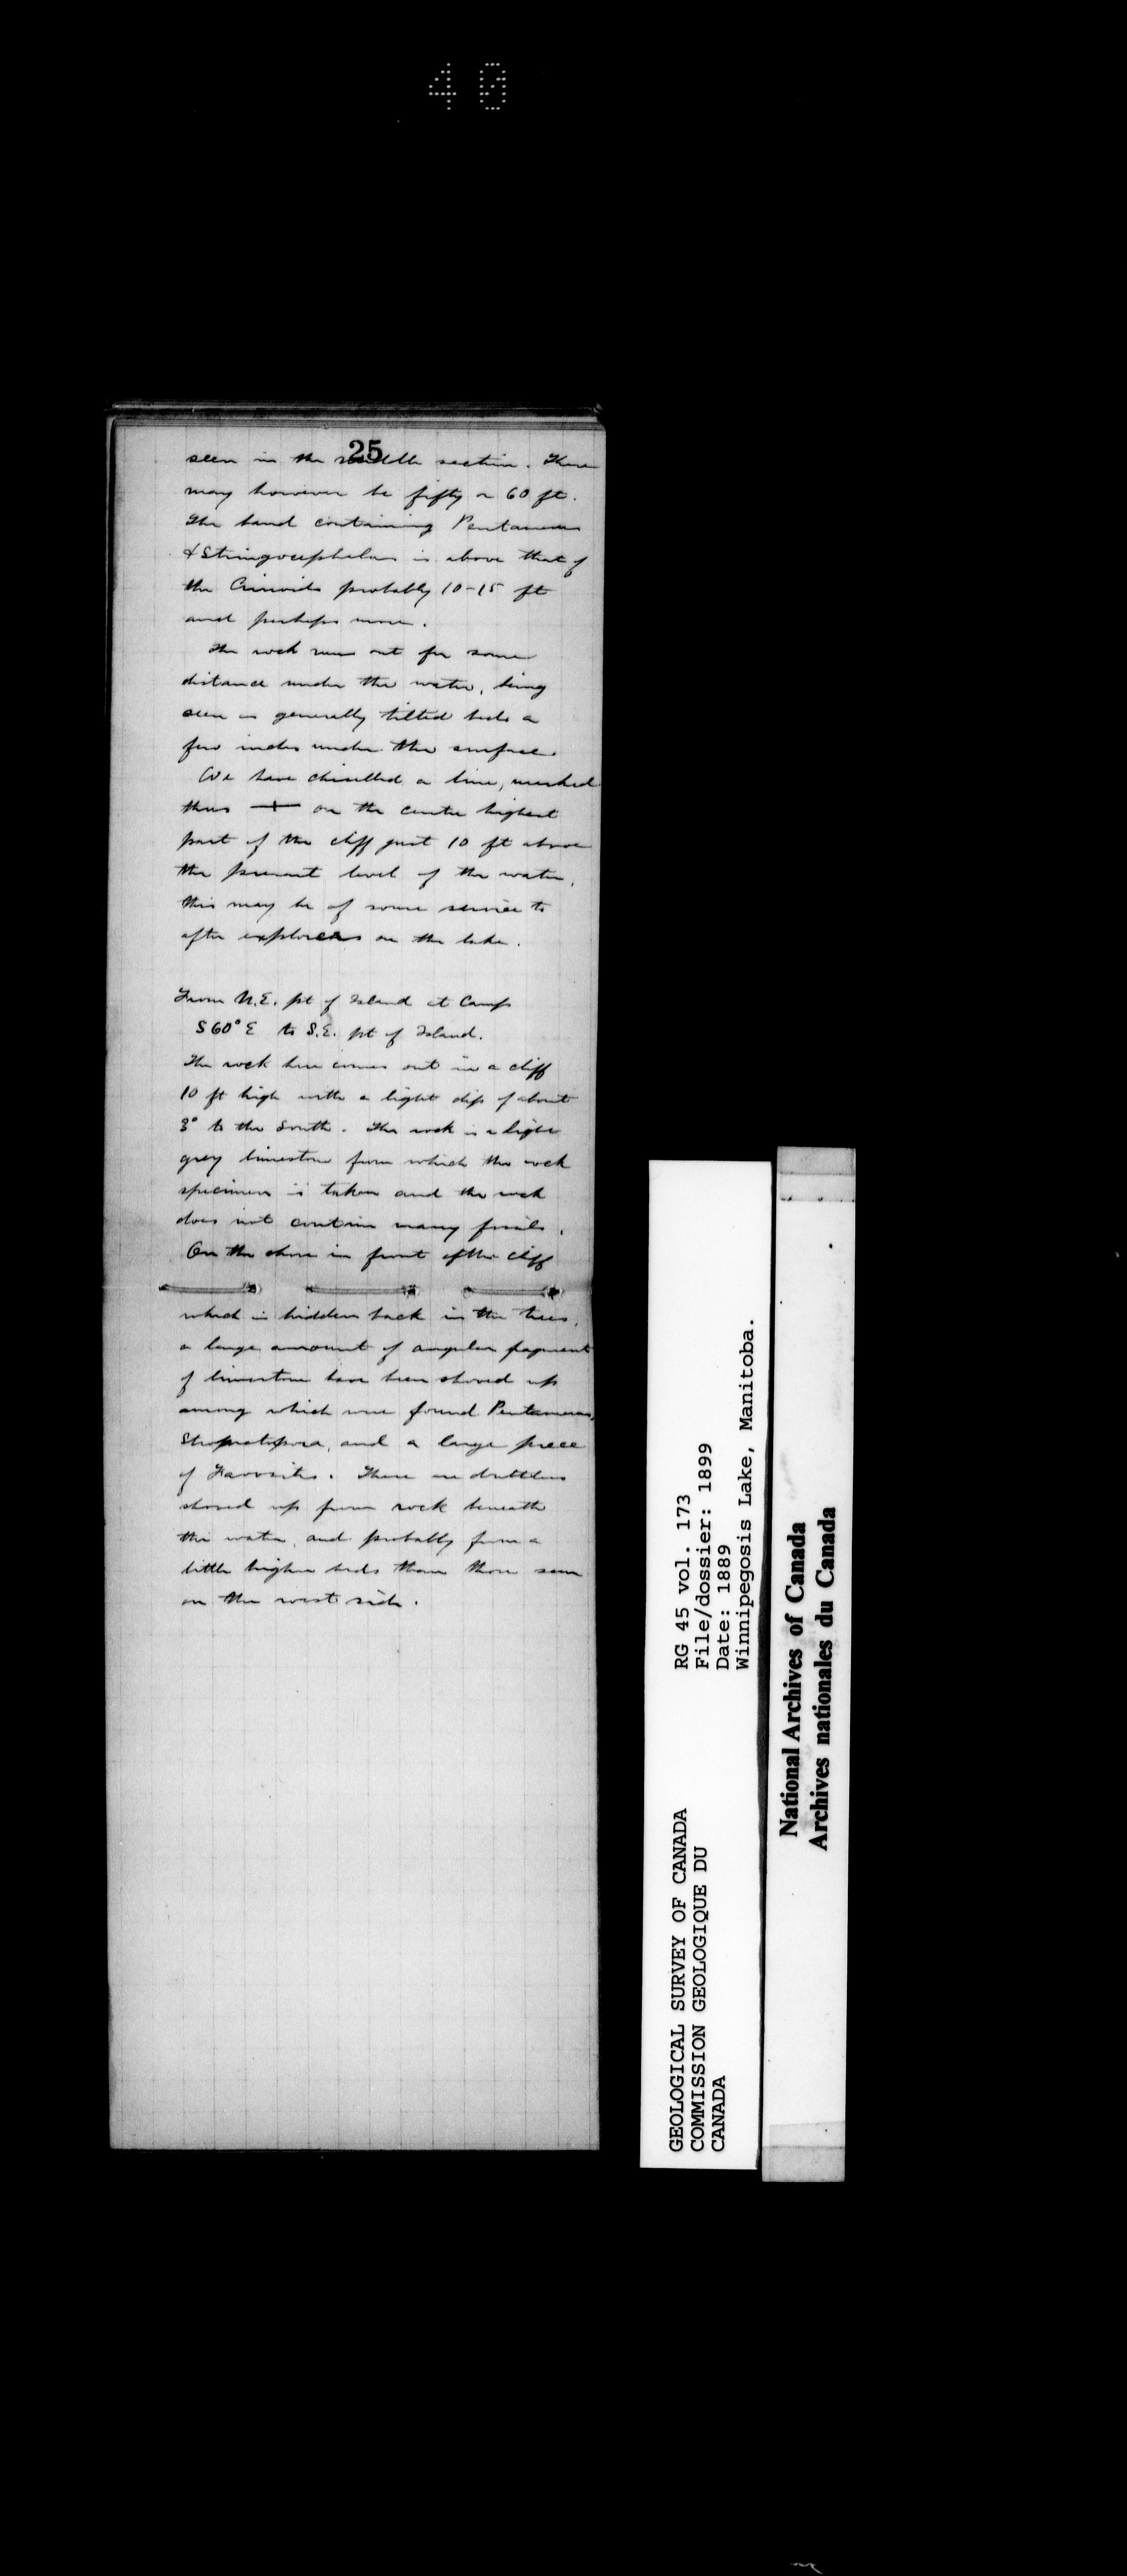 40
25
seen in the middle section. There
may however be fifty or 60 ft.
The band containing Pentamerus
& Stringocephalus is above that of
the Crinoids probably 10-15 ft
and perhaps more.
The rock runs out for some
distance under the water, being
seen in generally tilted beds a
few inches under the surface.
We have chiselled a line, marked
thus —+— on the centre highest
part of the cliff just 10 ft above
the present level of the water,
this may be of some service to
after explorers on the lake.
From N.E. pt of Island at Camp
S60°E to S.E. pt of Island.
The rock here comes out in a cliff
10 ft high with a light dip of about
3° to the South. The rock is a light
grey limestone from which the rock
specimen is taken and the rock
does not contain many fossils.
On the shore in front of the cliff
which is hidden back in the trees,
a large amount of angular fragments
of limestone have been shoved up
among which were found Pentamerus,
Stromatopora, and a large piece
of Favosites. These are
shoved up from rock beneath
the water, and probably from a
little higher beds than those seen
on the west side.
GEOLOGICAL SURVEY OF CANADA
COMMISSION GEOLOGIQUE DU
CANADA
RG 45 vol. 173
File/dossier: 1899
Date: 1889
Winnipegosis Lake, Manitoba.
National Archives of Canada
Archives nationales du Canada